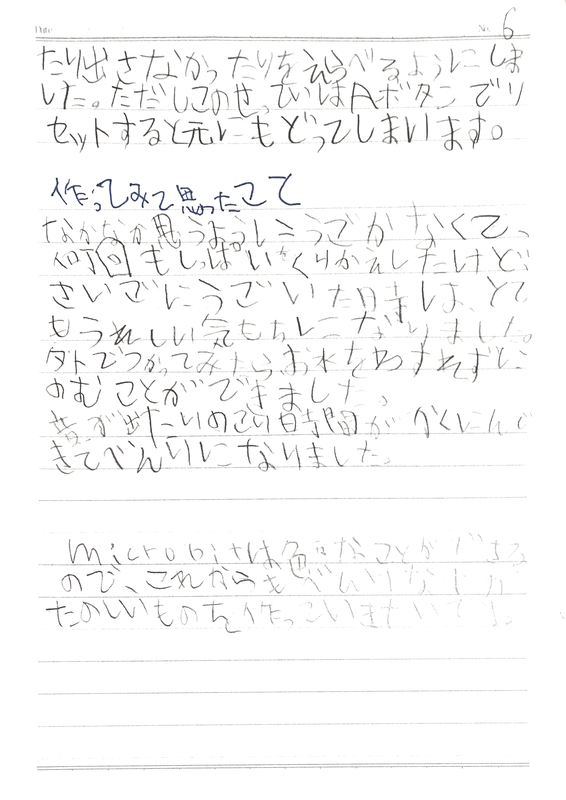 Date No. 6
たり出さなかったりをえらべるようにしま
した。ただしこのせっていはAボタンでリ
セットすると元にもどってしまいます。
作ってみて思ったこと
なかなか思うようにうごかなくて、
何回もしっぱいをくりかえしたけど、
さいごにうごいた時は、とて
もうれしい気もちになりました。
外でつかってみたらお水をわすれずに
のむことができました。
音が出たりのこり時間がかくにんで
きてべんりになりました。
microbitは色々なことができる
ので、これからもべんりな
たのしいものを作っていきたいです。